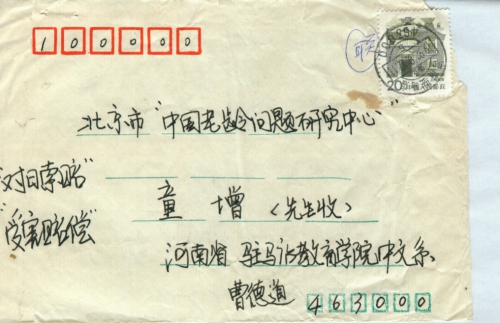 100000
联
20分 中国人民邮政
北京市"中国老龄问题研究中心"
"对日索赔"
"受害赔偿"
童 增 (先生收)
河南省 驻马店教育学院中文系
曹德道 463000